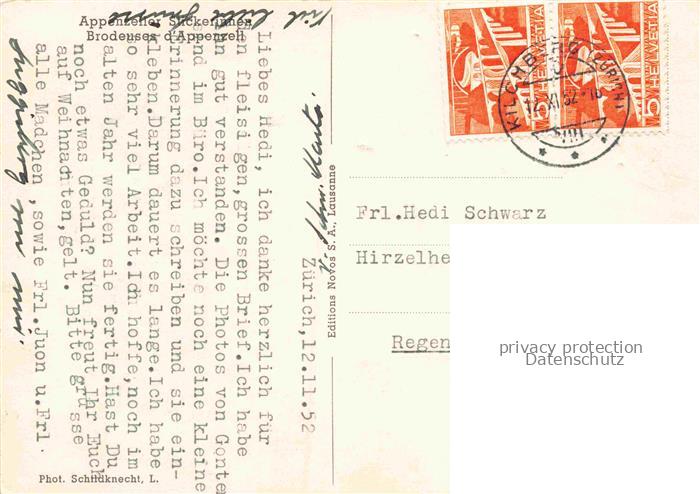 Appenzeller Stickerinnen
Brodeuses d'Appenzell
Zürich,12.11.52
Liebes Hedi, ich danke herzlich für
en fleissigen,grossen Brief.Ich habe
n gut verstanden. Die Photos von Gonten
sind im Büro.Ich möchte noch eine kleine
rinnerung dazu schreiben und sie ein-
leben.Darum dauert es lange.Ich habe
o sehr viel Arbeit.Ich hoffe,noch im
alten Jahr werden sie fertig.Hast Du
noch etwas Geduld? Nun freut Ihr Euch
auf Weihnachten,gelt. Bitte grüsse
alle Mädchen ,sowie Frl.Juon u.Frl.
Phot. Schildknecht, L.
Editions Novos S. A., Lausanne
5 HELVETIA
5 HELVETIA
KILCHBERG (ZÜRICH)
12.XI.52
Frl.Hedi Schwarz
Hirzelhe
Regen
privacy protection
Datenschutz